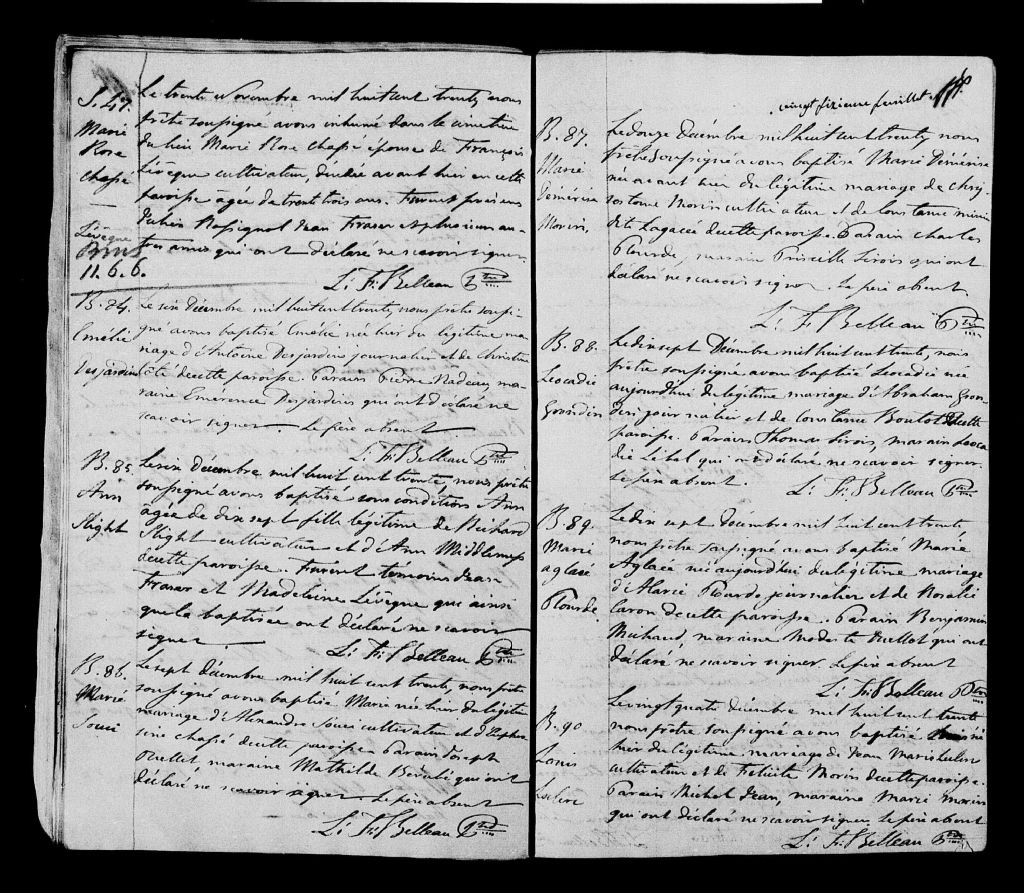 S. 47.
Marie
Rose
Chassé
Lévêque
11. 6. 6.
Le trente Novembre mil huit cent trente, nous
prêtre soussigné avons inhumé dans le cimetière
du lieu Marie Rose Chassé épouse de François
Lévêque cultivateur, décédée avant hier en cette
paroisse âgée de trente trois ans. Furent présens
Julien Rossignol Jean Fraser et plusieurs au-
tres amis qui ont déclaré ne scavoir signer
L: F: Belleau Ptre
B. 84.
Emélie
Desjardins
Le six Décembre mil huit cent trente, nous prêtre soussi-
gné avons baptisé Emélie née hier du légitime ma-
riage d'Antoine Desjardins journalier et de Christine
Côté de cette paroisse. Parain Pierre Nadeau, ma-
raine Emérence Desjardins qui ont déclaré ne
scavoir signer. Le père absent.
L: F: Belleau Ptre
B. 85
Ann
Slight
Le six décembre mil huit cent trente, nous prêtre
soussigné avons baptisé sous conditions Ann
âgée de dix sept fille légitime de Richard
Slight cultivateur et d'Ann Middlemiss
de cette paroisse. Furent témoins Jean
Fraser et Madeleine Lévêque qui ainsi
que la baptisée ont déclaré ne scavoir
signer
L: F: Belleau Ptre
B. 86.
Marie
Souci
Le sept décembre mil huit cent trente, nous prêtre
soussigné avons baptisé Marie née hier du légitime
mariage d'Alexandre Souci cultivateur et d'
Chassé de cette paroisse Parain Joseph
Ouellet maraine Mathilde Bérubé qui ont
déclaré ne scavoir signer. Le père absent
L: F: Belleau Ptre
vingt sixieme feuillet
B. 87.
Marie
Démérise
Morin,
Le douze Décembre mil huit cent trente, nous
prêtre soussigné avons baptisé Marie Démérise
née avant hier du légitime mariage de Chry-
sostome Morin cultivateur et de Constance
dite Lagacée de cette paroisse. Parain Charles
Plourde, maraine Priscille Sirois qui ont
déclaré ne scavoir signer. Le père absent
L: F: Belleau Ptre
B. 88.
Leocadie
Grondin
Le dix sept Décembre mil huit cent trente, nous
prêtre soussigné avons baptisé Leocadie née
aujourd'hui du légitime mariage d'Abraham Gron-
din journalier et de Constance Boutot de cette
paroisse. Parain Thomas Sirois, maraine Leoca-
die Lebel qui ont déclaré ne scavoir signer.
Le père absent.
L: F: Belleau Ptre
B. 89.
Marie
aglaé
Plourde
Le dix sept Décembre mil huit cent trente
nous prêtre soussigné avons baptisé Marie
Aglaée née aujourd'hui du légitime mariage
d'Alarie Plourde journalier et de Rosalie
Caron de cette paroisse. Parain Benjamin
Michaud, maraine Modeste Ouellet qui ont
déclaré ne scavoir signer. Le père absent
L: F: Belleau Ptre
B. 90
Louis
Leclerc
Le vingt quatre décembre mil huit cent trente
nous prêtre soussigné avons baptisé né
hier du légitime mariage de Jean Marie
cultivateur et de Felicité Morin de cette paroisse.
Parain Michel Jean, maraine Marie Morin
qui ont déclaré ne scavoir signer. Le père absent
L: F: Belleau Ptre